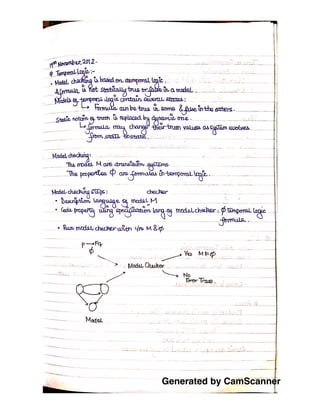 19th November, 2012.
* Temporal Logic :-
• Model checking is based on temporal logic.
A formula is not statically true or false in a model.
Models of temporal logic contain several states:
↳ Formula can be true in some & false in the others.
Static notion of truth is replaced by dynamic one.
↳ formula may change their truth values as system evolves
from state to state.
Model checking:
The model M are transition systems
The properties φ are formulas in temporal logic.
Model-checking steps:
checker
• Description language of model M
• Code property using specification lang of model checker: φ temporal logic
formula.
• Run model checker with i/ps M & φ
P → Fq
φ
Yes M ⊨ φ
Model Checker
No
Error Trace.
Model
Generated by CamScanner